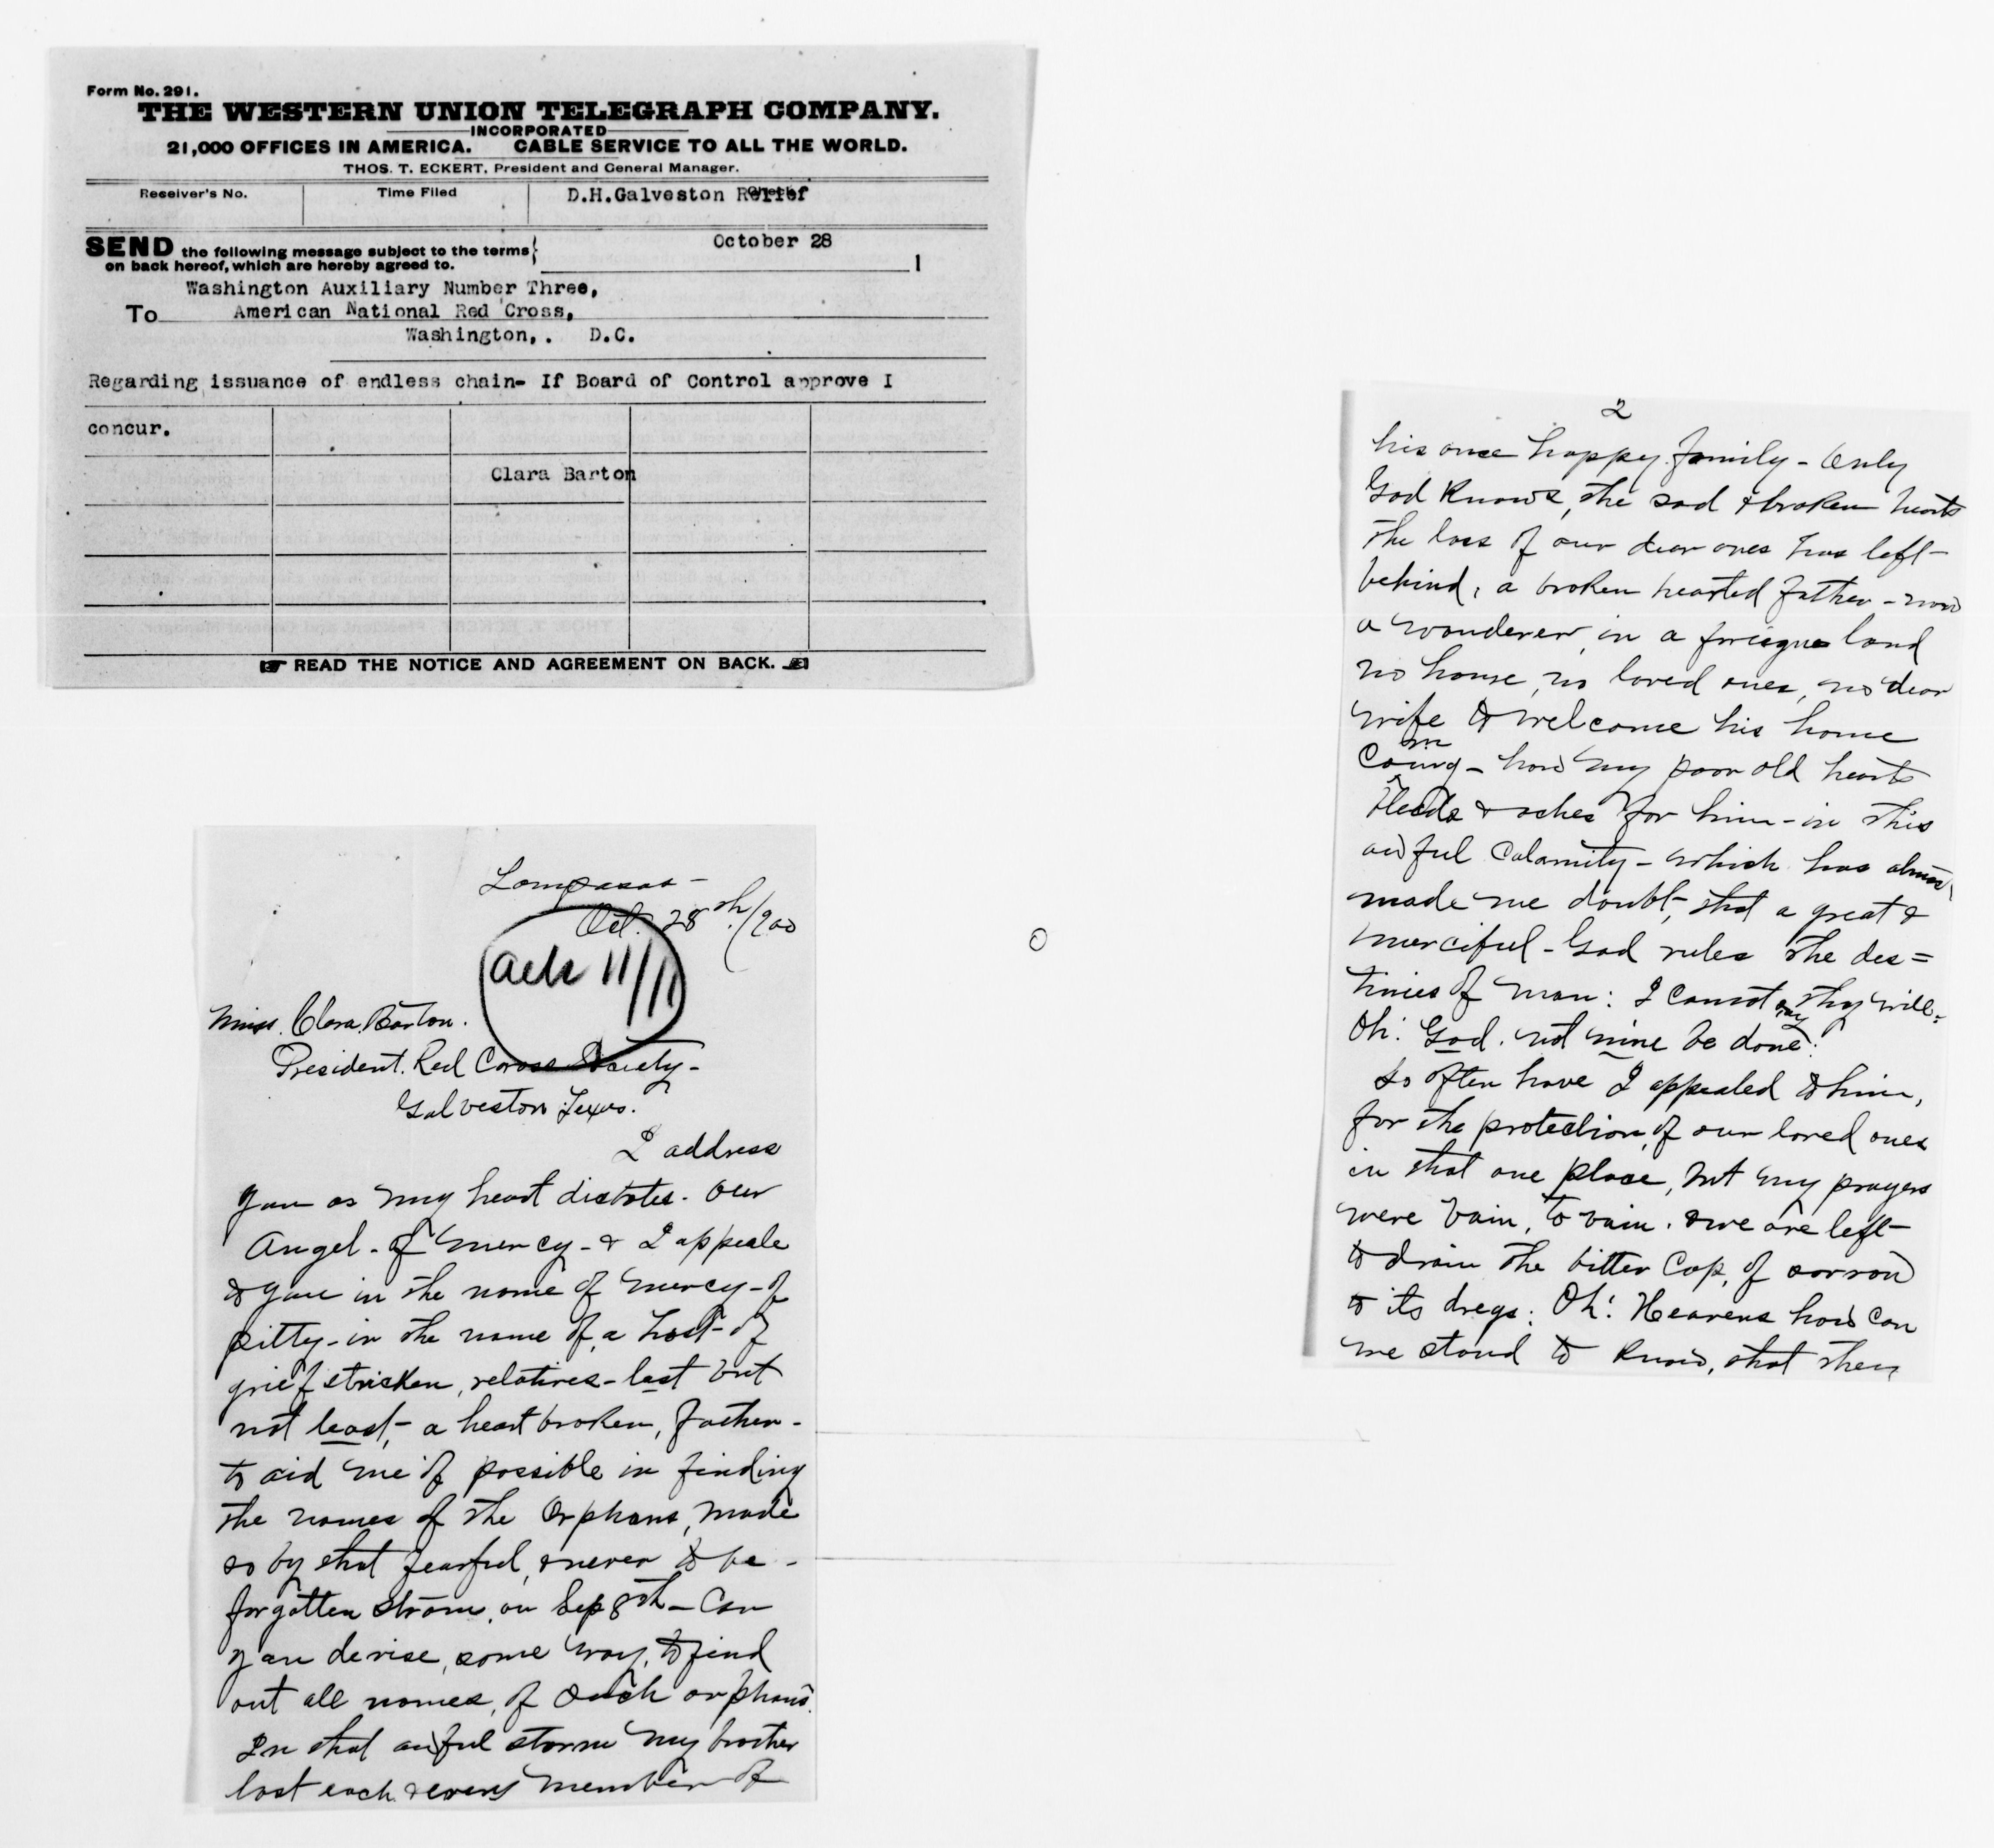 Form No. 291.
THE WESTERN UNION TELEGRAPH COMPANY.
INCORPORATED
21,000 OFFICES IN AMERICA. CABLE SERVICE TO ALL THE WORLD.
THOS. T. ECKERT, President and General Manager.
Receiver's No. Time Filed Check
D.H.Galveston Relief
October 28
SEND the following message subject to the terms
on back hereof, which are hereby agreed to. 1
Washington Auxiliary Number Three,
To American National Red Cross,
Washington,. D.C.
Regarding issuance of endless chain- If Board of Control approve I
concur.
Clara Barton
READ THE NOTICE AND AGREEMENT ON BACK.
Lampasas -
Oct. 28th/900
Ack 11/11
Miss. Clara. Barton.
President. Red Cross Society -
Galveston Texas.
I address
you as my heart dictates. Our
Angel - of mercy - & I appeale
to you in the name of mercy - of
pitty - in the name of, a host - of
grief stricken, relatives - last but
not least, - a heart broken, father -
to aid me if possible in finding
the names of the Orphans, made
so by that fearful, & never to be -
forgotten strom, on Sep 8th - Can
you devise, some way, to find
out all names, of such orphans.
In that awful storm my brother
lost each & every member of
2
his once happy family - Only
God knows, the sad & broken hearts
the loss of our dear ones has left -
behind, a broken hearted father - now
a wanderer, in a foriegne land
no home, no loved ones, no dear
wife to welcome his home
coming - how my poor old heart
bleeds & aches for him - in this
awful calamity - which has almost
made me doubt, that a great &
merciful - God rules the des=
tinies of man: I cannot say thy will -
Oh! God. not mine be done:
So often have I appealed to him,
for the protection, of our loved ones
in that one place, but my prayers
were vain, to vain. & we are left -
to drain the bitter Cop, of sorrow
to its dregs: Oh! Heavens how can
we stand to know, that they